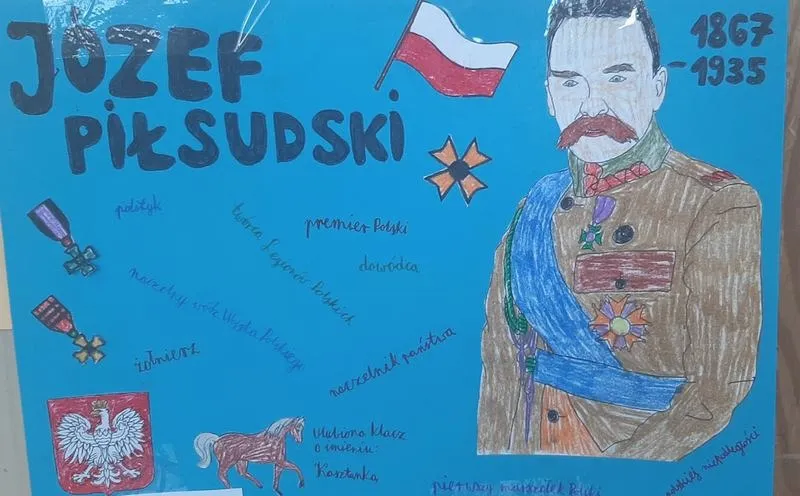 JÓZEF
PIŁSUDSKI
1867
-1935
polityk
twórca Legionów Polskich
premier Polski
dowódca
naczelny wódz Wojska Polskiego
żołnierz
naczelnik państwa
Ulubiona klacz
o imieniu:
Kasztanka
pierwszy marszałek Polski
niepodległości